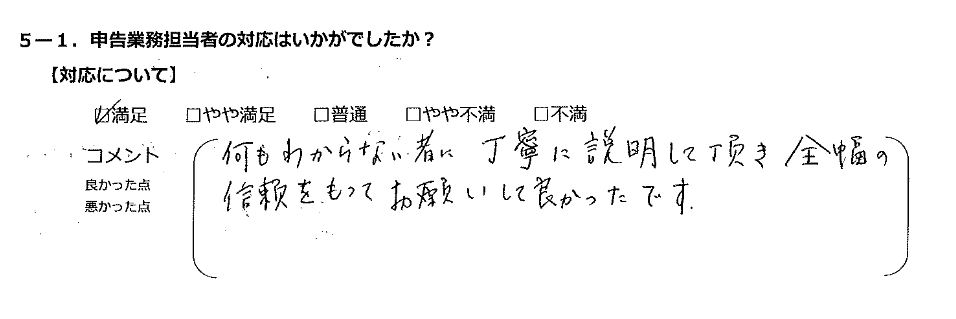 5－1．申告業務担当者の対応はいかがでしたか？
【対応について】
☑満足 □やや満足 □普通 □やや不満 □不満
コメント
良かった点
悪かった点
何もわからない者に 丁寧に説明して頂き 全幅の
信頼をもってお願いして良かったです.